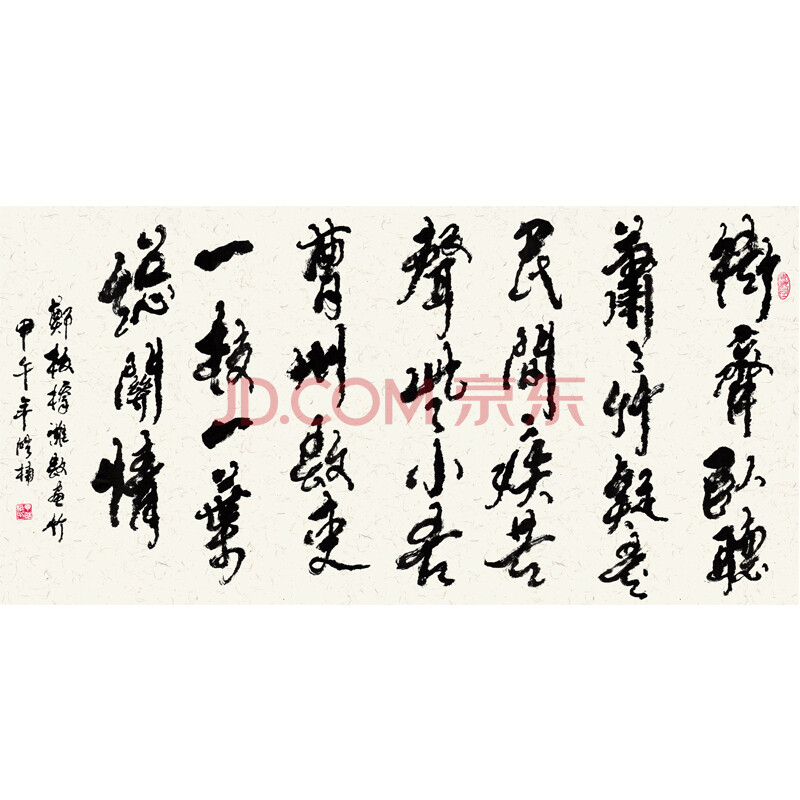 衙齋臥聽
蕭〻竹疑是
民間疾苦
聲些小吾
曹州縣吏
一枝一葉
總關情
鄭板橋濰縣畫竹
甲午年
JD.COM 京东